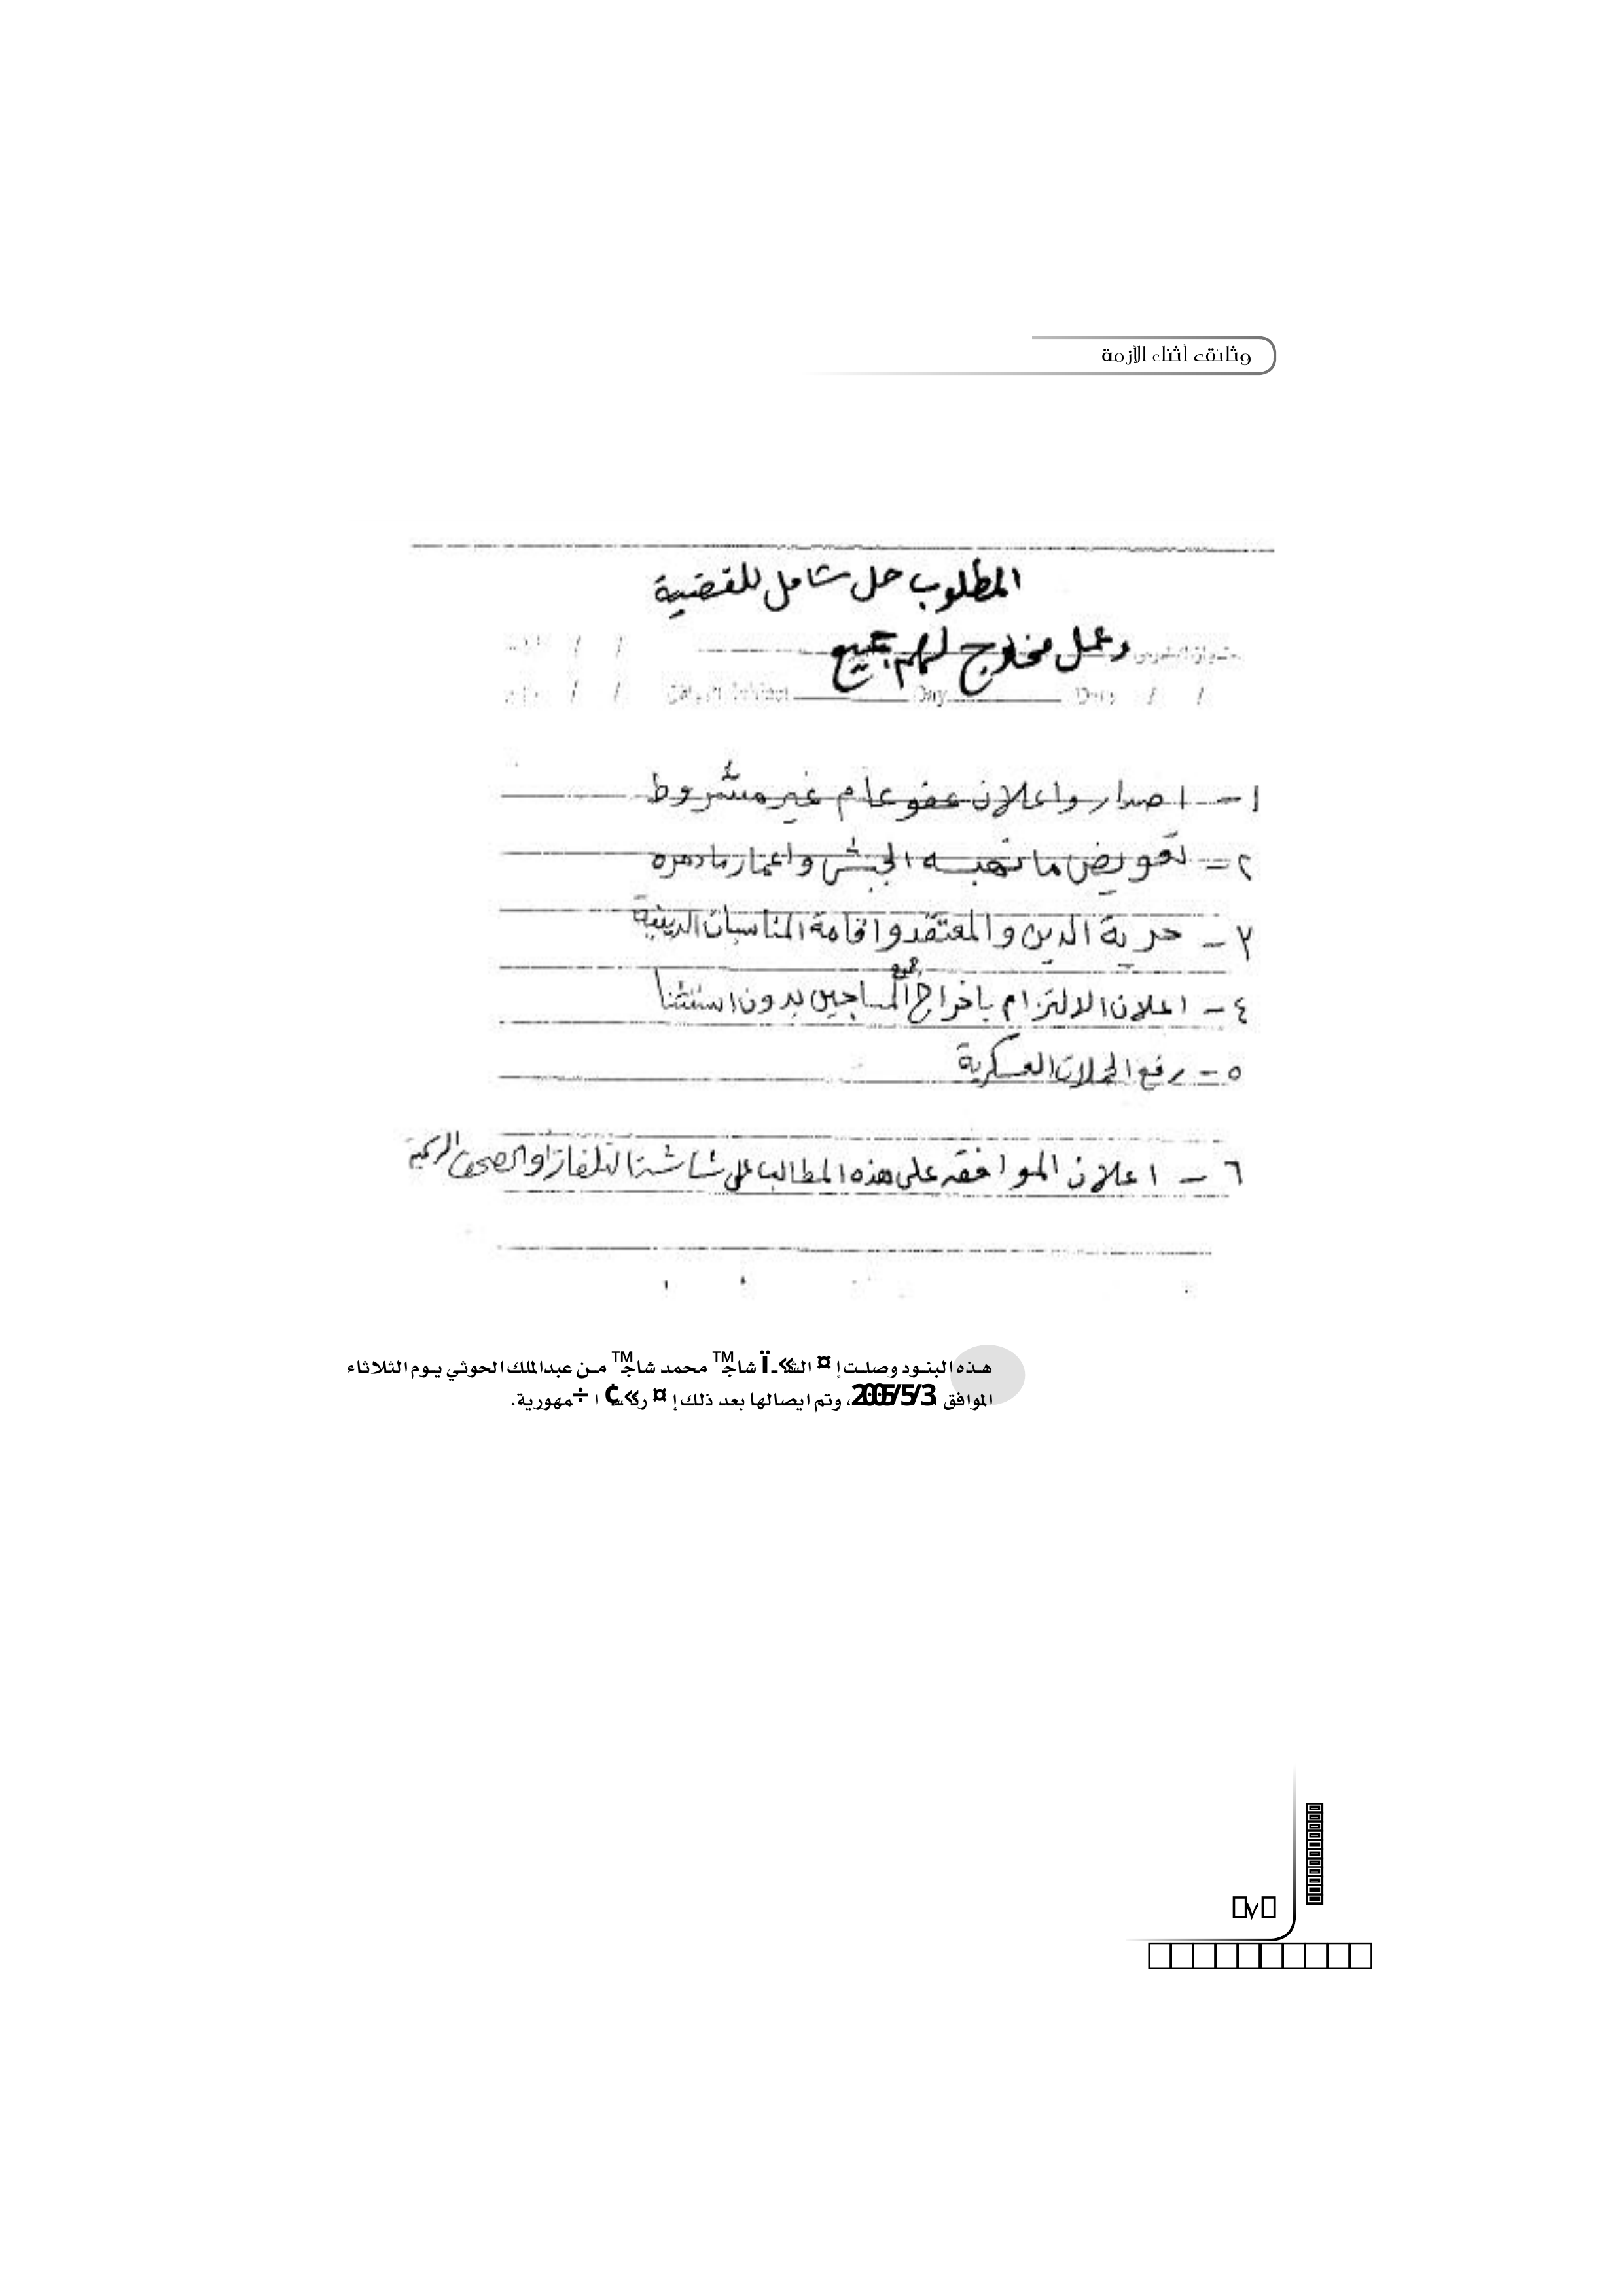 وثائق أثناء الأزمة
المطلوب حل شامل للقضية
وعمل مخارج لهم جميع
Day Date / /
١- اصدار واعلان عفو عام غير مشروط
٢- تعويض ما نهبه الجيش واعمار ما دمره
٣- حرية الدين والمعتقد واقامة المناسبات الدينية
٤- اعلان الالتزام باخراج جميع المساجين بدون استثنا
٥- رفع الحملات العسكرية
٦- اعلان الموافقه على هذه المطالب على شاشة التلفاز او الصحف الرسمية
هذه البنود وصلت إ¤ محمد من عبدالملك الحوثي يوم الثلاثاء
الموافق 2005/5/3، وتم ايصالها بعد ذلك إ¤ ا÷مهورية.